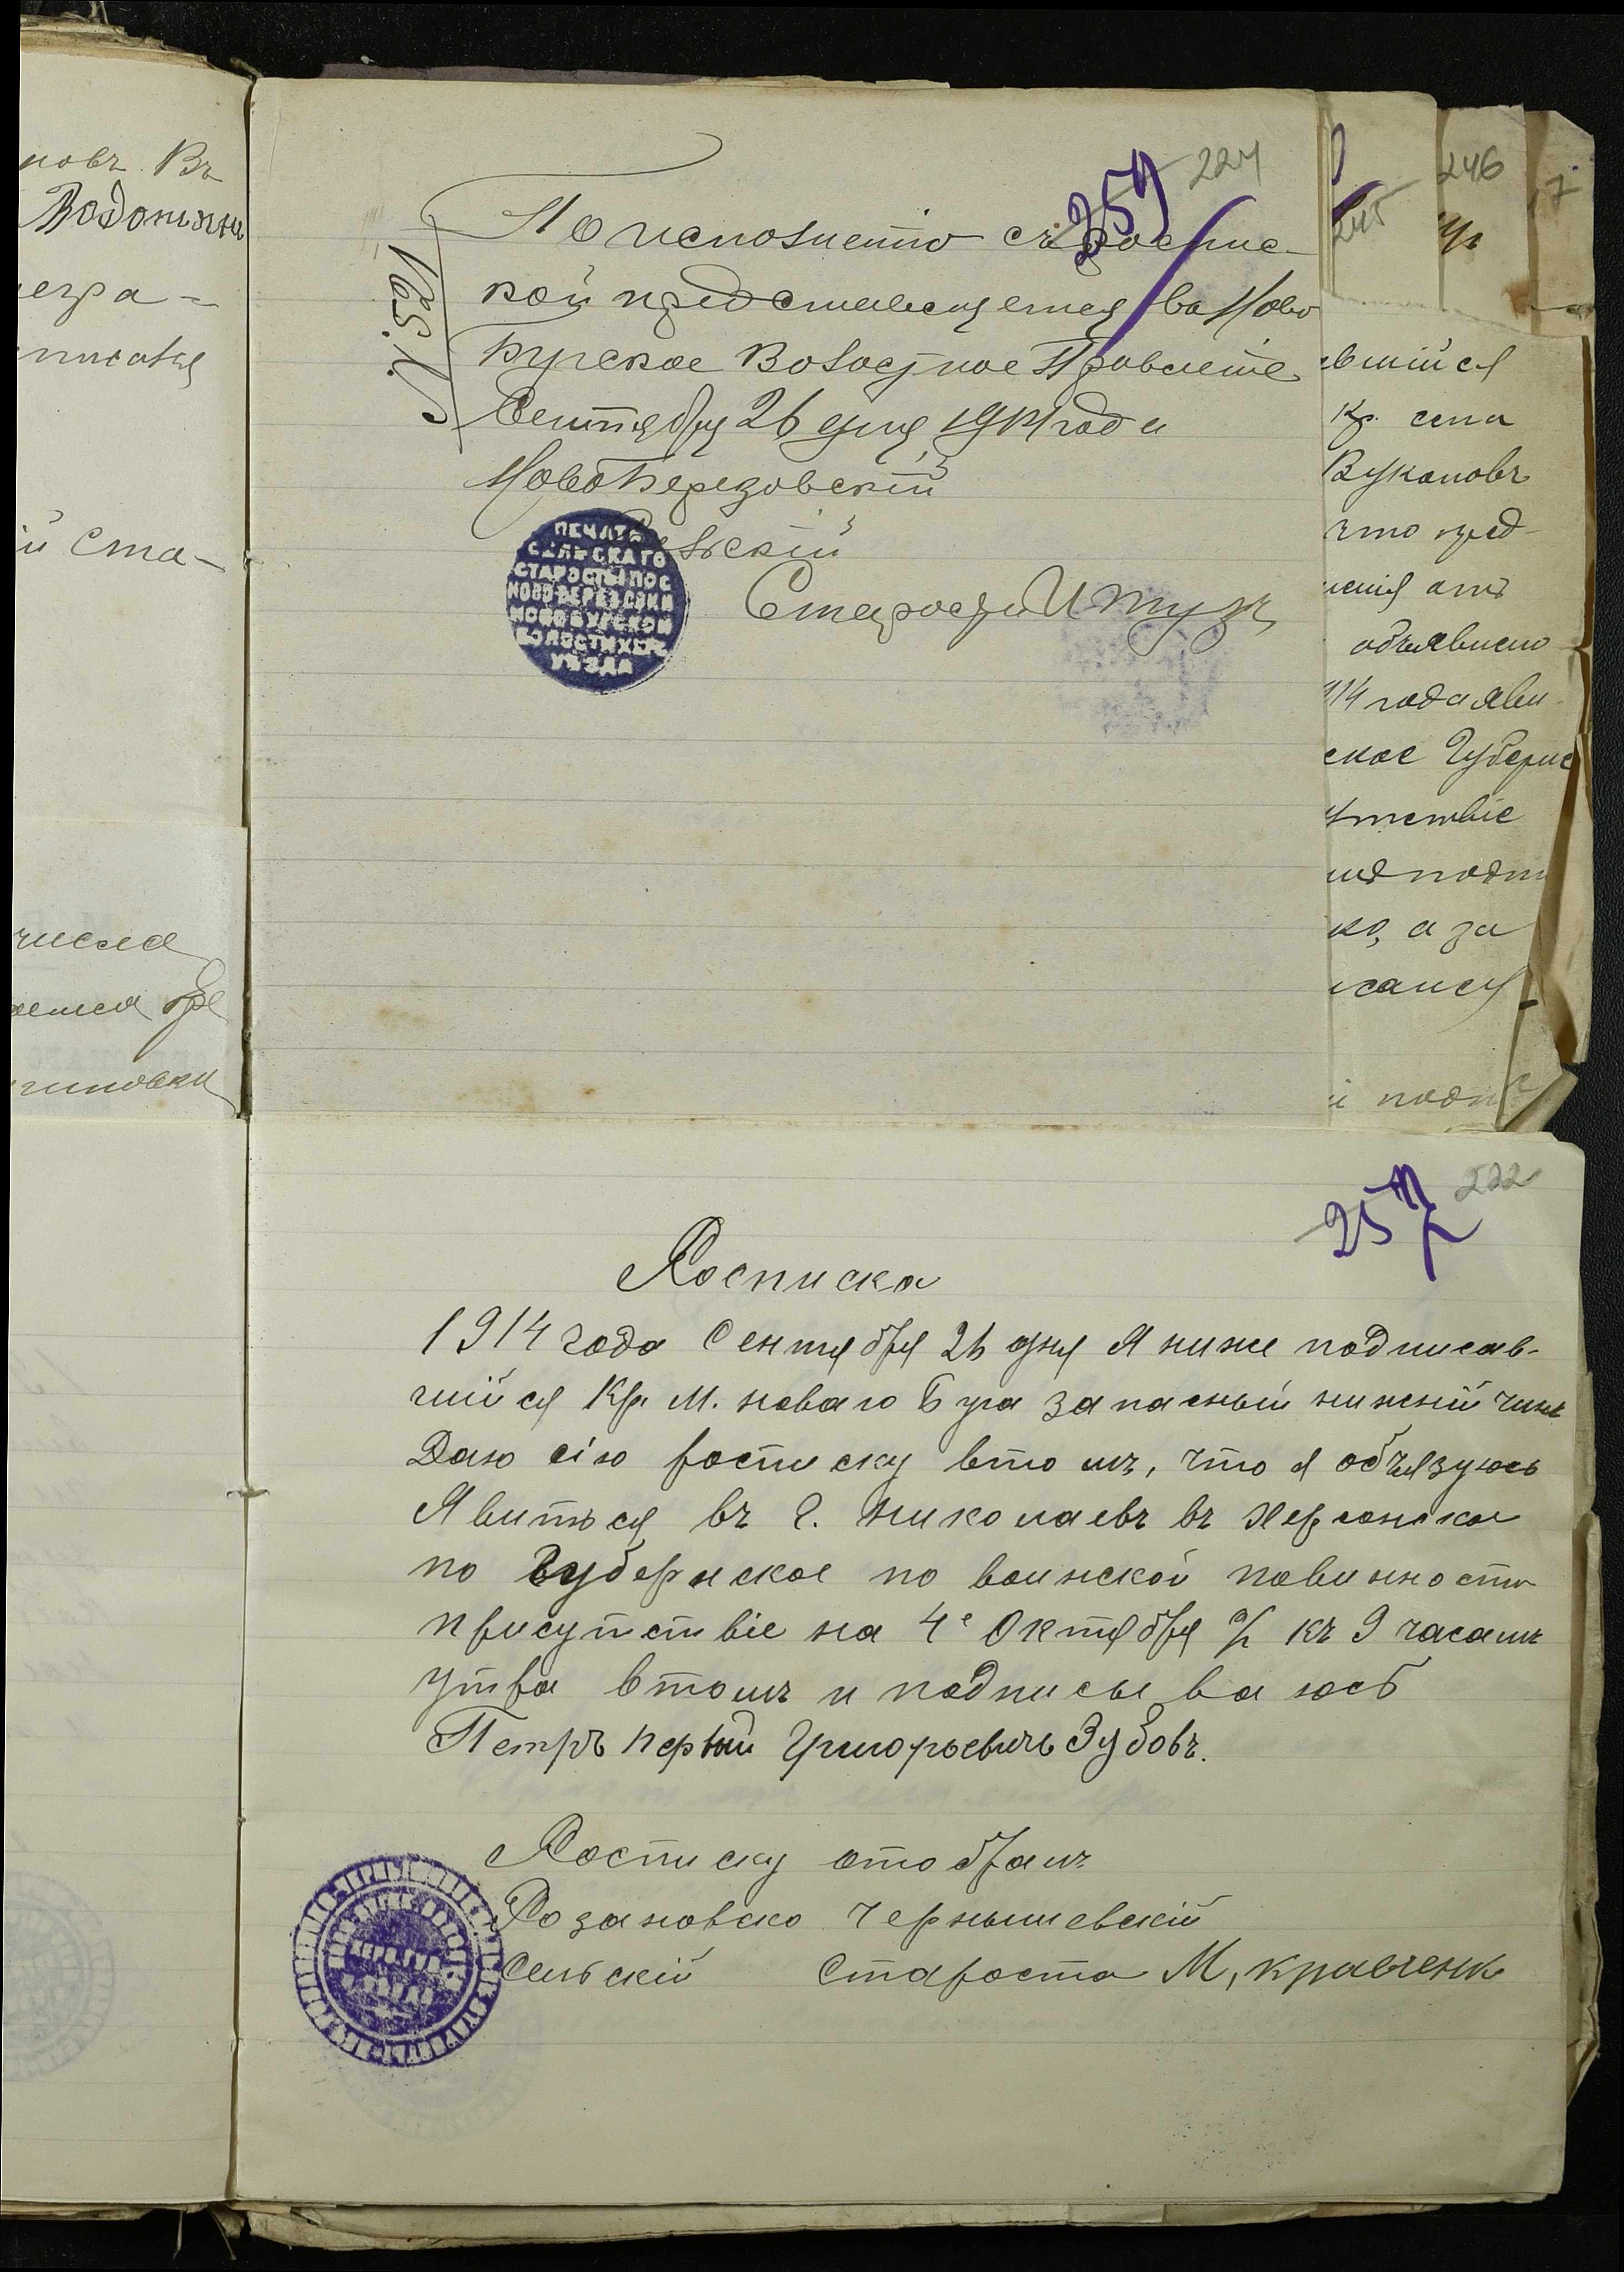 новъ Въ
257 224
По исполнению съ роспис-
кой представляется въ Ново
Бугское Волостное Правление
Сентября 26 дня 1914 года
НовоБерезовскій
Сельскій
Староста
№ 51.
ПЕЧАТЬ
СЕЛЬСКАГО
СТАРОСТЫ ПОС
НОВО-БЕРЕЗОВКИ
НОВОБУГСКОЙ
ВОЛОСТИ ХЕРС
УѢЗДА
й ста-
числа
245
246
7
вшійся
Кр. села
что пред-
объявлено
914 года яви
ское Губернс
утствіе
ко, а за
257 222
Росписка
1914 года Сентября 26 дня Я ниже подписав-
шійся Кр. М. новаго Буга запасный нижній чинъ
Даю сію росписку втомъ, что я объязуюсь
Явиться въ г. Николаевъ въ Херсонское
по Губернское по воинской повинности
присутствіе на 4е Октября с/г къ 9 часамъ
утра втомъ и подписываюсь
Петръ первый Григорьевичъ Зубовъ.
Росписку отобралъ
Розановско Чернышевскій
Сельскій Староста М, Кравченко